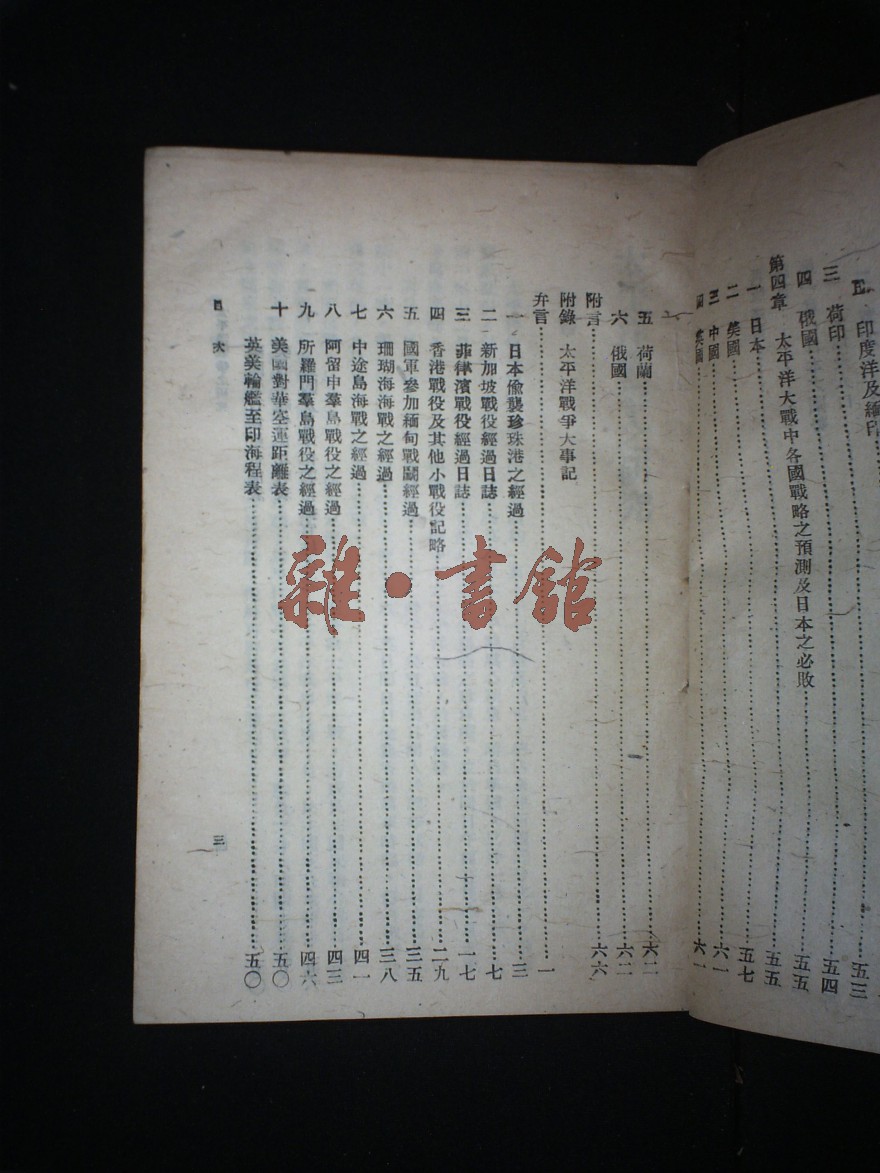 印度洋及緬印……五三
三 荷印……五四
四 俄國……五五
第四章 太平洋大戰中各國戰略之預測及日本之必敗……五五
一 日本……五七
二 美國……六一
三 中國……六一
四 英國……六一
五 荷蘭……六二
六 俄國……六二
附言……六六
附錄 太平洋戰爭大事記
弁言……一
一 日本偷襲珍珠港之經過……三
二 新加坡戰役經過日誌……七
三 菲律濱戰役經過日誌……一七
四 香港戰役及其他小戰役記略……二九
五 國軍參加緬甸戰鬭經過……三五
六 珊瑚海海戰之經過……三八
七 中途島海戰之經過……四一
八 阿留申羣島戰役之經過……四三
九 所羅門羣島戰役之經過……四六
十 美國對華空運距離表……五〇
英美輪艦至印海程表……五〇
目次 三
雜·書館